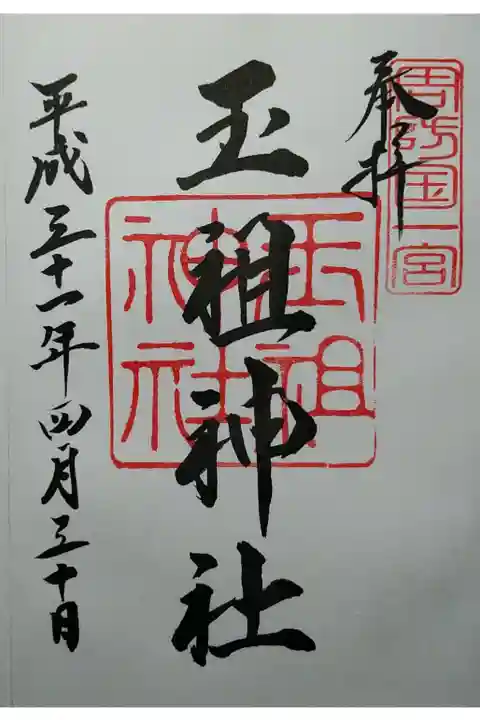 周防国一宮
奉拝
玉祖神社
玉祖
神社
平成三十一年四月三十日